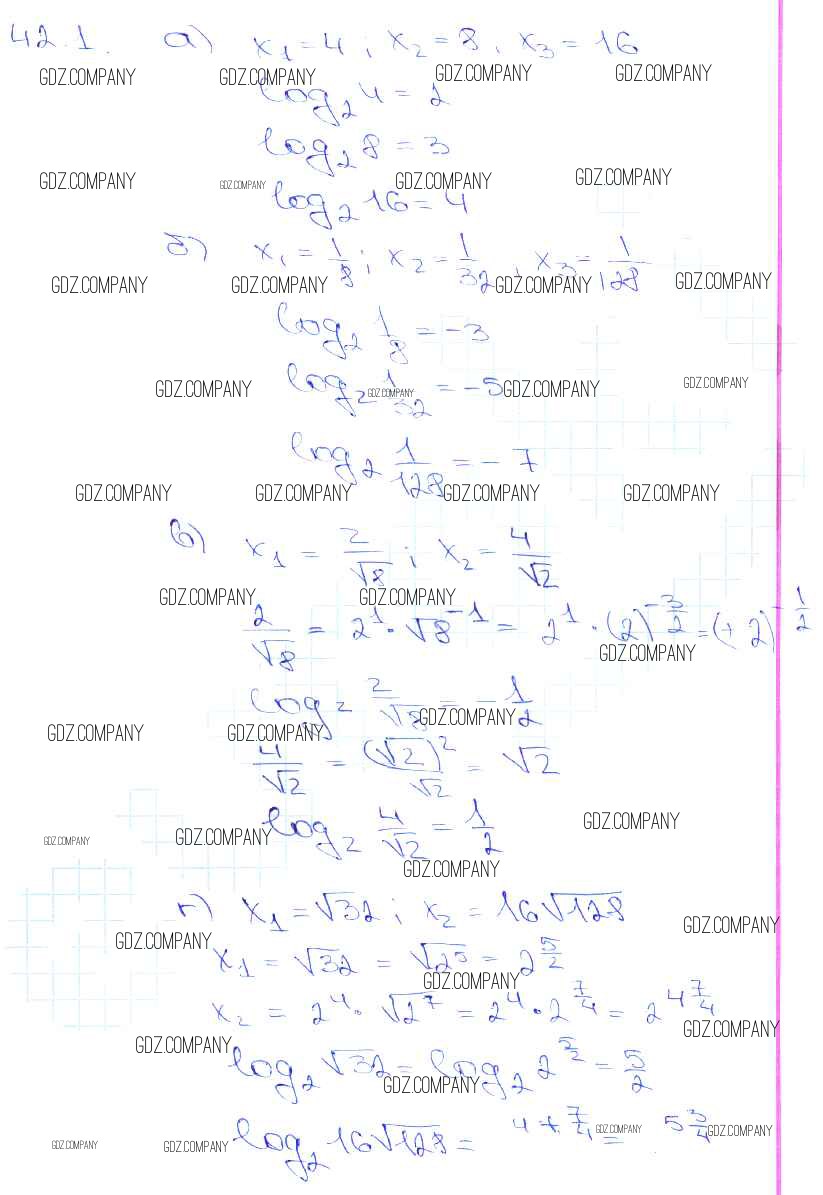 42.1. а) x₁ = 4; x₂ = 8, x₃ = 16
GDZ.COMPANY GDZ.COMPANY GDZ.COMPANY GDZ.COMPANY
log₂ 4 = 2
log₂ 8 = 3
GDZ.COMPANY GDZ.COMPANY GDZ.COMPANY GDZ.COMPANY
log₂ 16 = 4
б) x₁ = 1/8; x₂ = 1/32, x₃ = 1/128
GDZ.COMPANY GDZ.COMPANY GDZ.COMPANY GDZ.COMPANY
log₂ 1/8 = -3
log₂ 1/32 = -5
GDZ.COMPANY GDZ.COMPANY GDZ.COMPANY GDZ.COMPANY
log₂ 1/128 = -7
GDZ.COMPANY GDZ.COMPANY GDZ.COMPANY GDZ.COMPANY
в) x₁ = 2/√8; x₂ = 4/√2
GDZ.COMPANY GDZ.COMPANY
2/√8 = 2¹ · √8⁻¹ = 2¹ · (2)^(-3/2) = (+2)^(-1/2)
GDZ.COMPANY
log₂ 2/√8 = -1/2
GDZ.COMPANY GDZ.COMPANY GDZ.COMPANY
4/√2 = (√2)²/√2 = √2
log₂ 4/√2 = 1/2
GDZ.COMPANY GDZ.COMPANY GDZ.COMPANY GDZ.COMPANY
г) x₁ = √32; x₂ = 16√128
GDZ.COMPANY GDZ.COMPANY
x₁ = √32 = √2⁵ = 2^(5/2)
GDZ.COMPANY
x₂ = 2⁴ · √2⁷ = 2⁴ · 2^(7/4) = 2^(4 7/4)
GDZ.COMPANY GDZ.COMPANY
log₂ √32 = log₂ 2^(5/2) = 5/2
GDZ.COMPANY
log₂ 16√128 = 4 + 7/4 = 5 3/4
GDZ.COMPANY GDZ.COMPANY GDZ.COMPANY GDZ.COMPANY